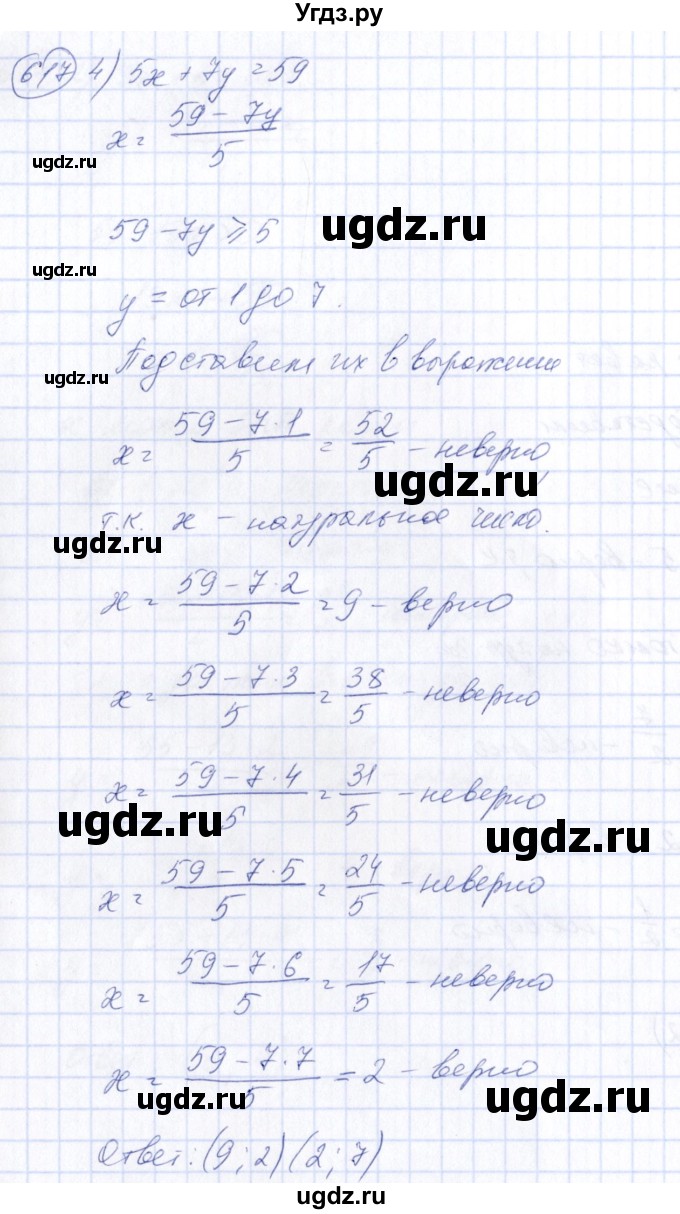 Угдз.ру
617 4) 5x + 7y = 59
x = (59 - 7y)/5
ugdz.ru
59 - 7y ⩾ 5
ugdz.ru
ugdz.ru
y = от 1 до 7.
Подставим их в выражение
ugdz.ru
x = (59 - 7·1)/5 = 52/5 - неверно,
ugdz.ru
т.к. x - натуральное число.
ugdz.ru
x = (59 - 7·2)/5 = 9 - верно
x = (59 - 7·3)/5 = 38/5 - неверно
x = (59 - 7·4)/5 = 31/5 - неверно
ugdz.ru
ugdz.ru
x = (59 - 7·5)/5 = 24/5 - неверно
x = (59 - 7·6)/5 = 17/5 - неверно
x = (59 - 7·7)/5 = 2 - верно
ugdz.ru
ugdz.ru
Ответ: (9; 2) (2; 7)
ugdz.ru